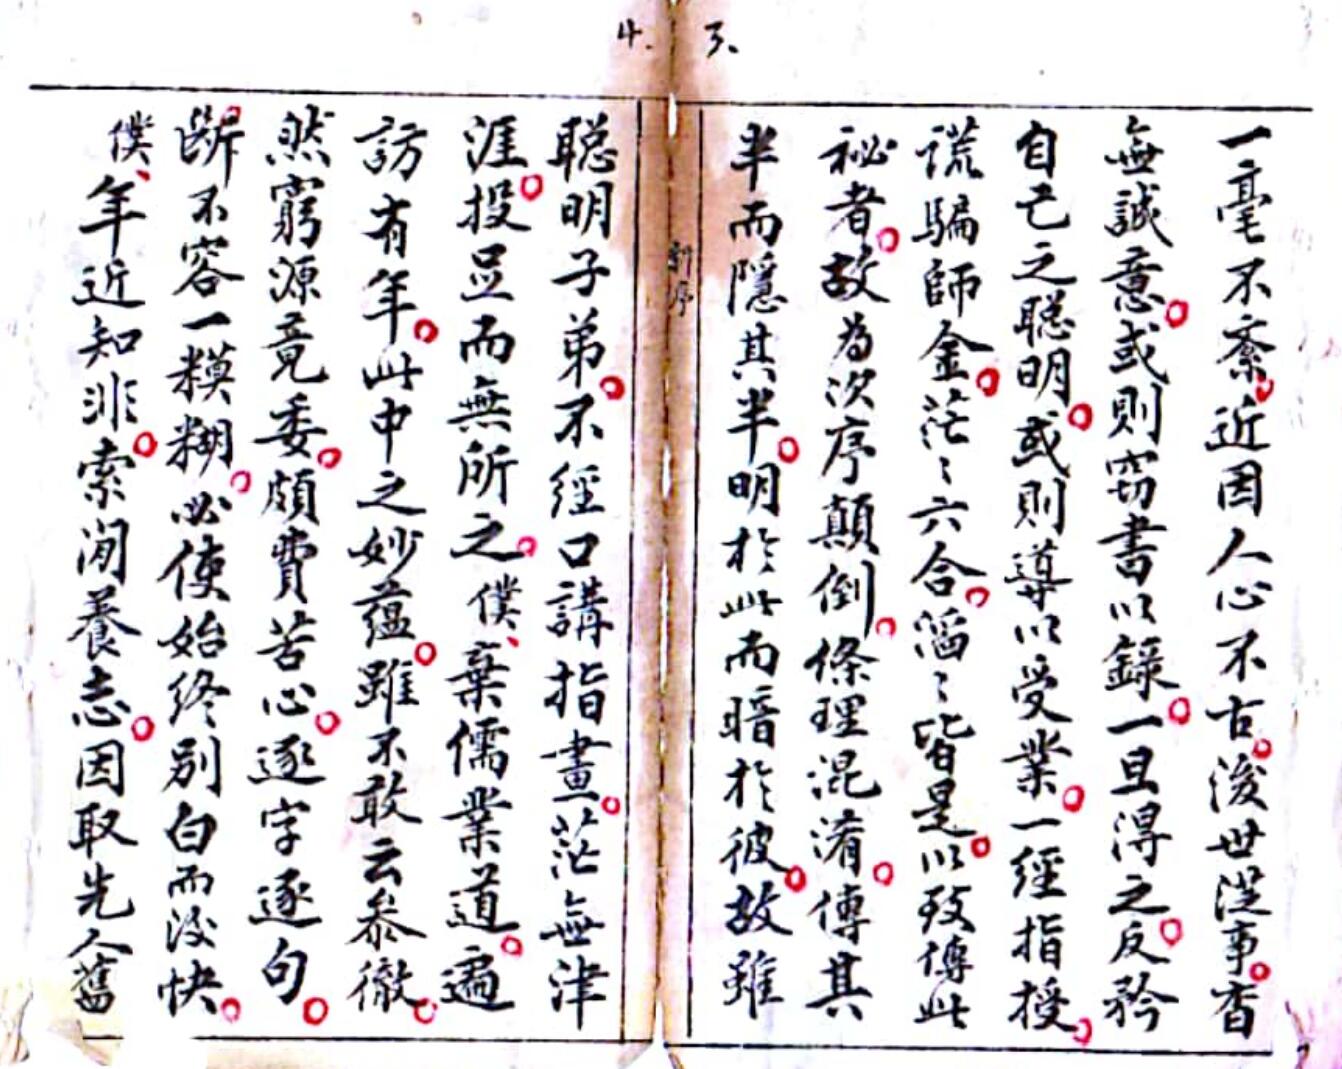 3.
一毫不紊。近因人心不古。後世從事。杳
無誠意。或則窃書以錄。一旦得之。反矜
自己之聡明。或則導以受業。一經指授。
謊騙師金。茫〻六合。滔〻皆是。以致傳此
祕者。故為次序顛倒。條理混淆。傳其
半而隱其半。明於此而暗於彼。故雖
新序
4.
聡明子弟。不經口講指畫。茫無津
涯。投足而無所之。僕、棄儒業道。遍
訪有年。此中之妙蘊。雖不敢云参徹。
然窮源竟委。頗費苦心。逐字逐句。
斷不容一糢糊。必使始終別白而後快。
僕、年近知非。索閒養志。因取先人舊